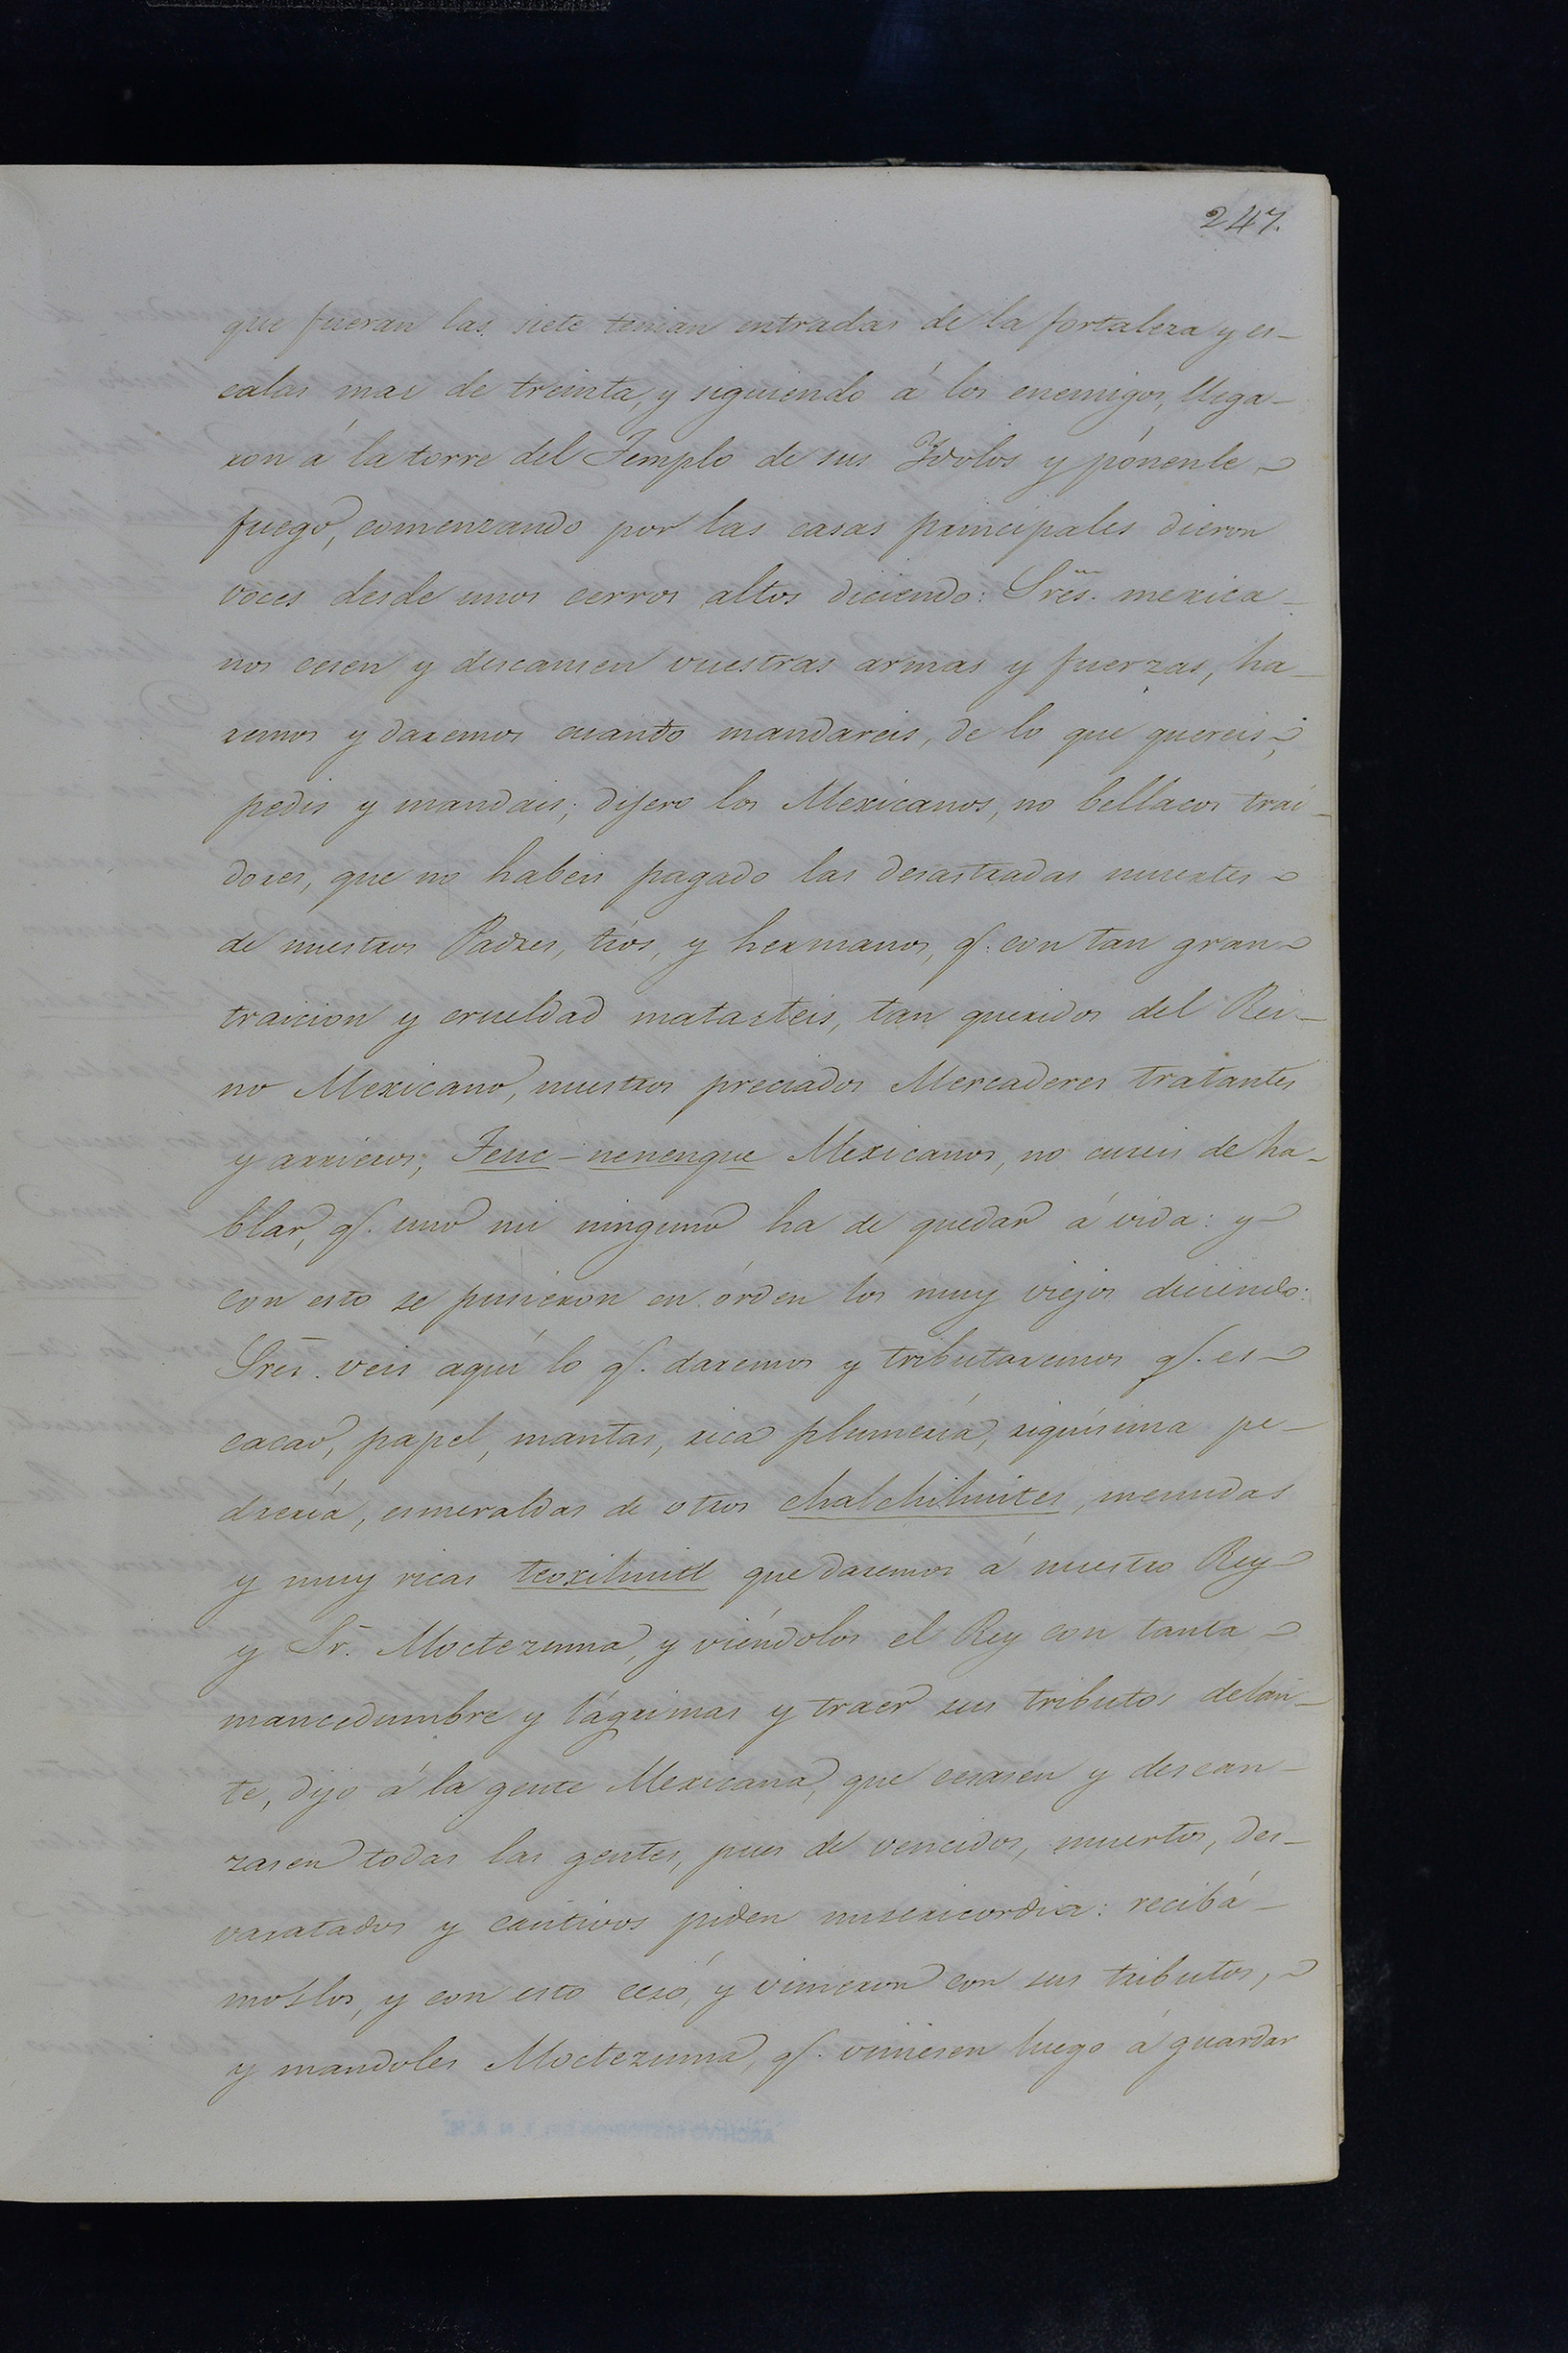 247.
que fueran las siete tenian entradas de la fortaleza y es-
calas mas de treinta, y siguiendo á los enemigos, llega-
ron á la torre del Templo de sus Ydolos y pónenle
fuego, comenzando por las casas principales dieron
voces desde unos cerros altos diciendo: Sres. mexica-
nos cesen y descansen vuestras armas y fuerzas, ha-
remos y daremos cuanto mandareis, de lo que quereis,
pedis y mandais; dijero los Mexicanos, no bellacos trai-
dores, que no habeis pagado las desastradas muertes
de nuestros Padres, tios, y hermanos, q. con tan gran
traicion y crueldad matasteis, tan queridos del Rei-
no Mexicano, nuestros preciados Mercaderes tratantes
y arrieros, Tenc-nenenque Mexicanos, no cureis de ha-
blar, q. uno ni ninguno ha de quedar á vida: y
con esto se pusieron en órden los muy viejos diciendo:
Sres. veis aquí lo q. daremos y tributaremos q. es
cacao, papel, mantas, rica plumería, riquísima pe-
drería, esmeraldas de otros chalchihuites, menudas
y muy ricas teoxihuitl que daremos á nuestro Rey
y Sr. Moctezuma, y viéndolos el Rey con tanta
mancedumbre y lágrimas y traer sus tributos delan-
te, dijo á la gente Mexicana, que cesasen y descan-
zasen todas las gentes, pues de vencidos, muertos, des-
varatados y cautivos piden misericordia: recibá-
moslos, y con esto cesó, y vinieron con sus tributos,
y mandoles Moctezuma, q. viniesen luego á guardar